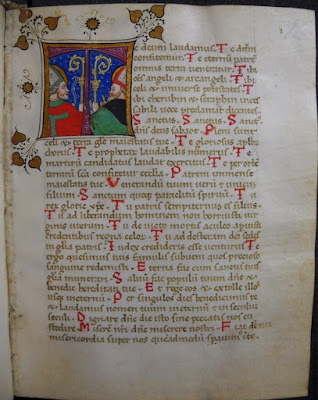 e deum laudamus T e dñm
confitemur T e eternũ patrẽ
omnis terra veneratur T ibi
oẽs angeli T ibi
celi & universe potestates T ibi
cherubin & seraphin inces
sabili voce proclamãt
Sanctus Sanctus S anctus
dñs deus sabaoth P leni sunt
celi & terra glẽ maiestatis tue T e gloriosus aplõꝝ
chorus T e prophetaꝝ laudabilis numerus T e
martirũ candidatus laudat exercitus T e per orbẽ
terrarũ scã confitetur ecclia P atrem immense
maiestatis tue V enerandũ tuum verũ & unicũ
filium S anctum quoqꝫ paraclitũ spiritũ T u
rex glorie xp̃e T u patris sempiternus es filius
T u ad liberandum hominem non horruisti vir
ginis uterum T u devicto mortis aculeo apuisti
credentibus regna celoꝝ T u ad dexteram dei sedes
in gloria patris I udex crederis esse venturus T e
ergo quesumus tuis famulis subveni quos precioso
sanguine redemisti E terna fac cum sanctis tuis
gloria munerari S alvũ fac populũ tuum dñe &
benedic hereditati tue E t rege eos & extolle illos
usqꝫ ineternũ P er singulos dies benedicimus te
& laudamus nomen tuum ineternũ & in seculum
seculi D ignare dñe die isto sine peccato nos cu
stodire M iserere nr̃i dñe miserere nostri F iat
misericordia super nos quẽadmodũ speravimꝰ ĩ te